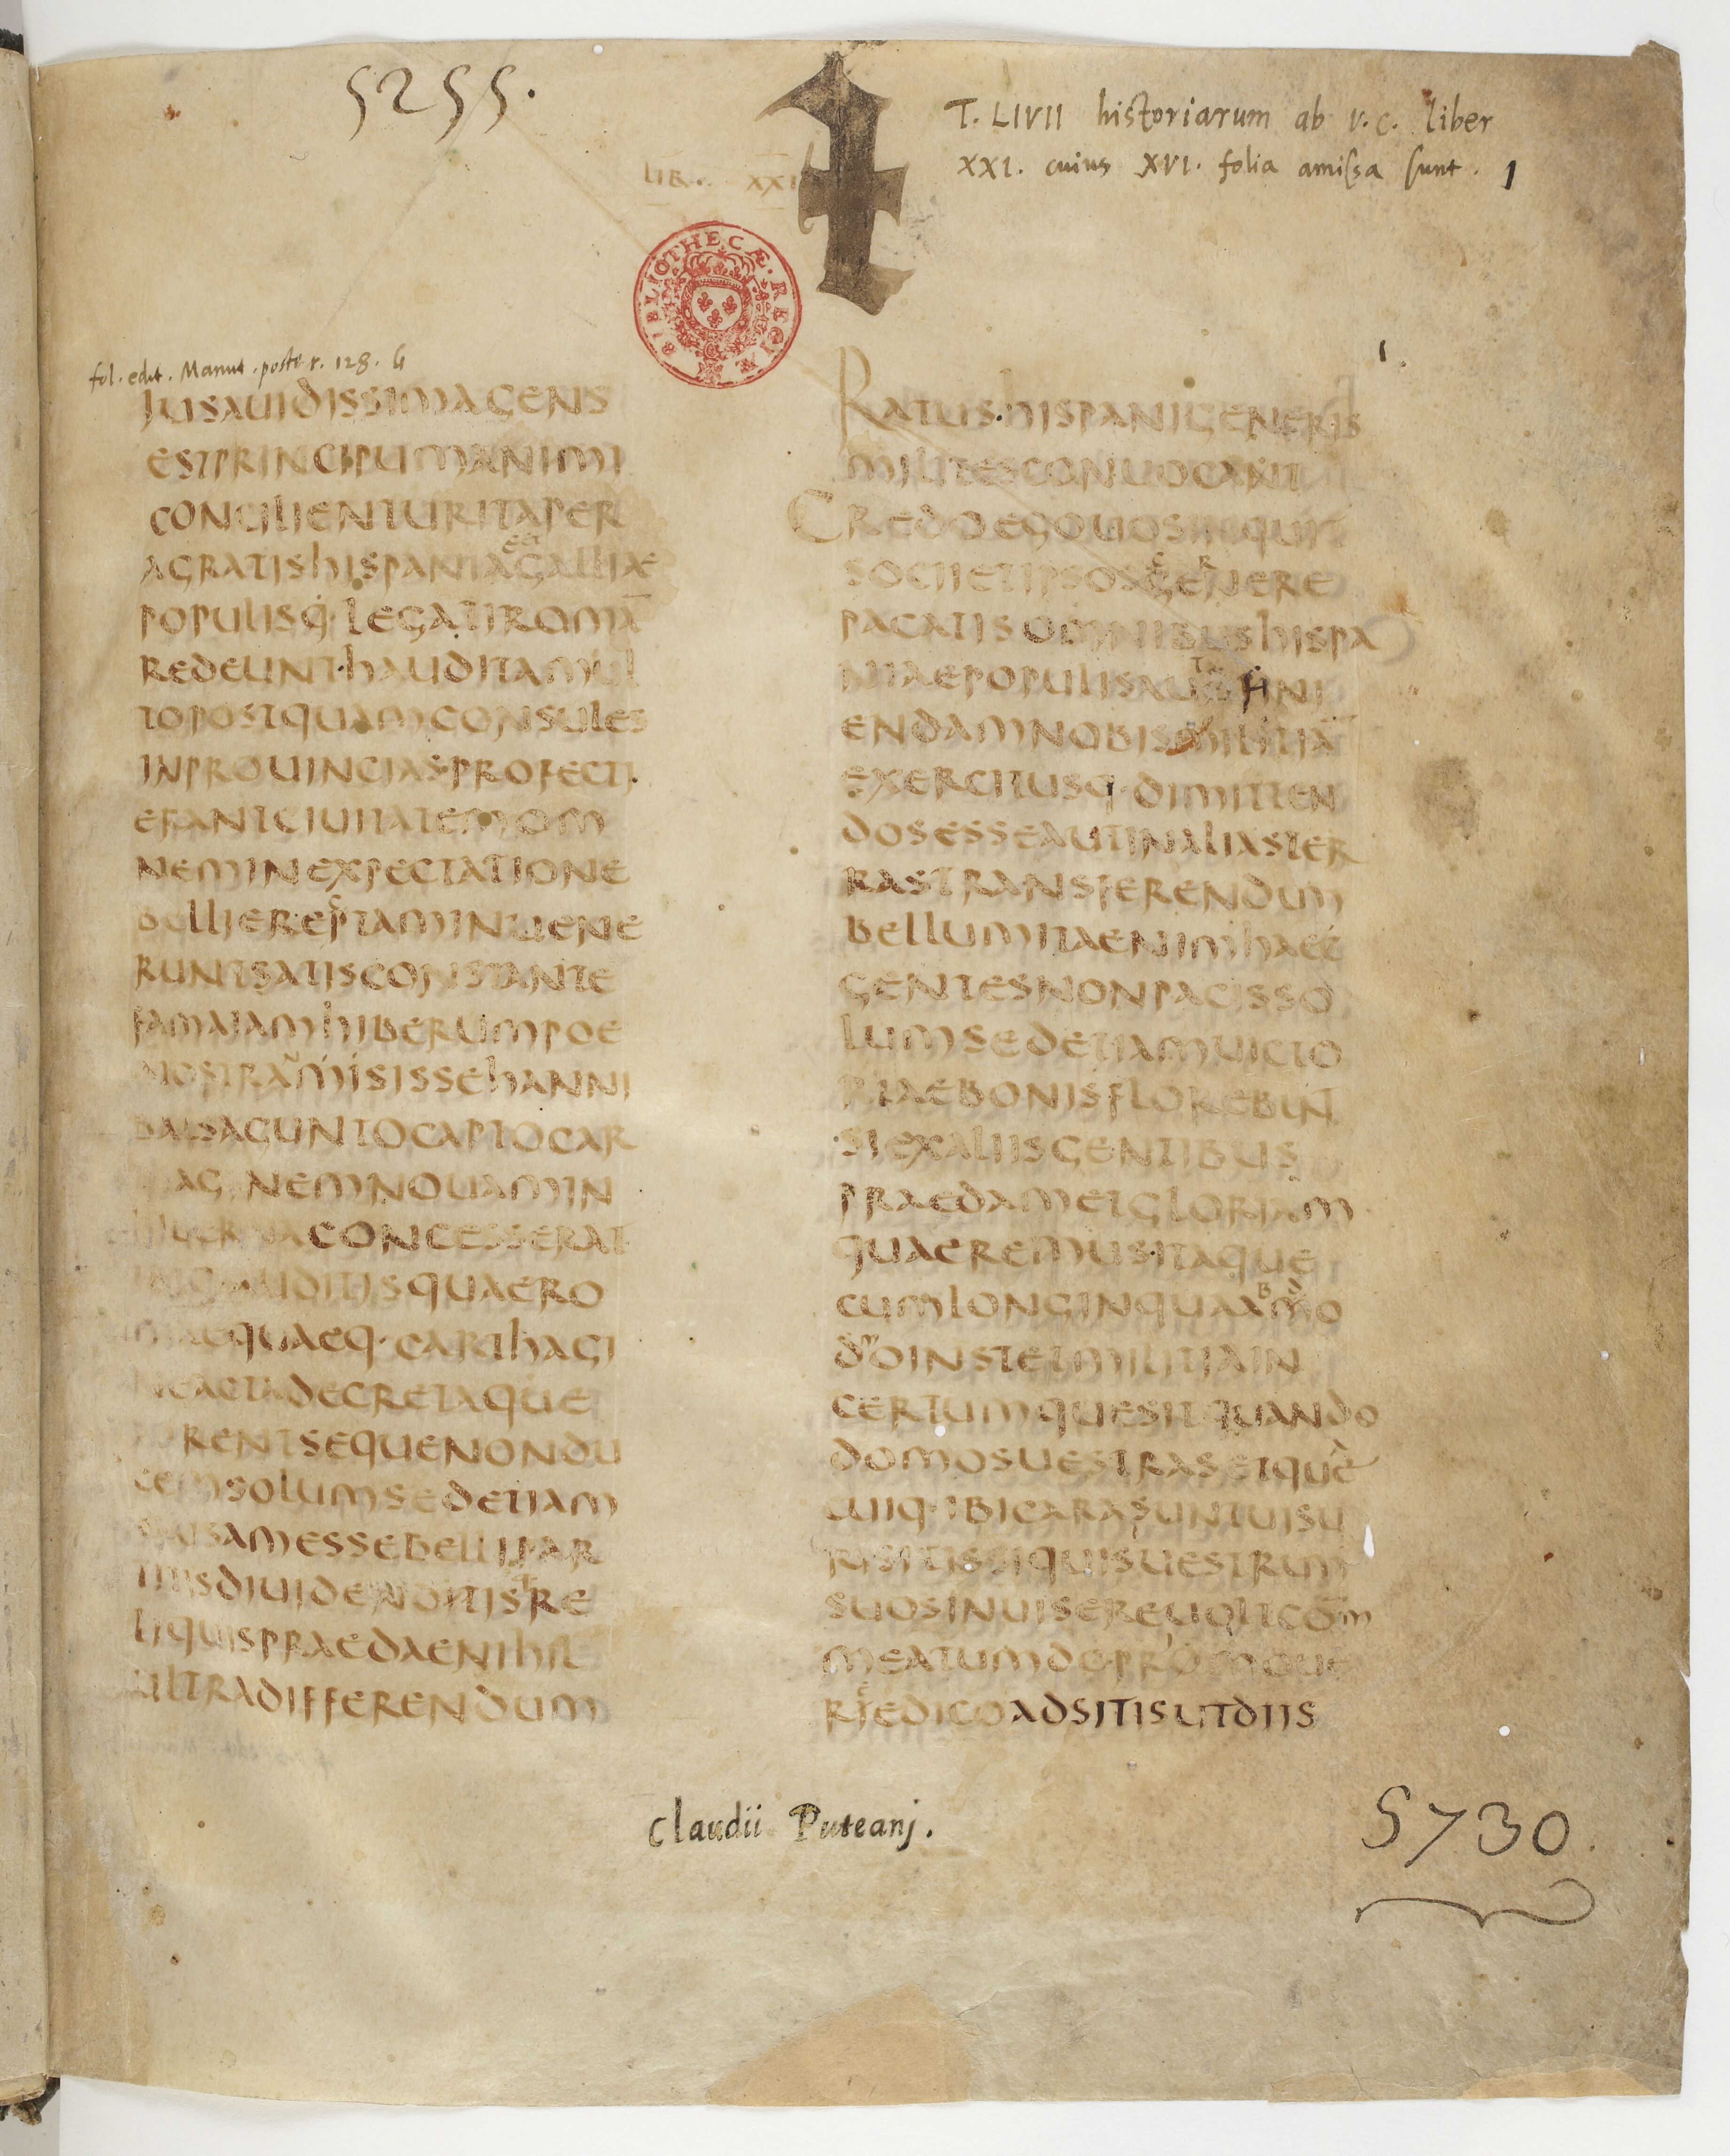 5255.
T. LIVII historiarum ab v.c. liber
XXI. cuius XVI. folia amissa sunt. 1
LIB. XXI
BIBLIOTHECÆ REGIÆ
fol. edit. Manut. poster. 128. G
IUSAUIDISSIMAGENS
ESTPRINCIPUMANIMI
CONCILIENTURITAPER
AGRATISHISPANIAETGALLIAE
POPULISQ·LEGATIROMĀ
REDEUNT·HAUDITAMUL
TOPOSTQUAMCONSULES
INPROUINCIAS·PROFECTI·
ERANTCIUITATEMOM
NEMINEXPECTATIONE
BELLIERECPTAMINUENE
RUNTSATISCONSTANTE
FAMAIAMHIBERUMPOE
NOSTRAMISISSEHANNI
BALSAGUNTOCAPTOCAR
AG NEMNOUAMIN
HIBERNACONCESSERAT
AUDITISQUAERO
MAEQUAEQ·CARTHAGI
NEACTADECRETAQUE
RENTSEQUENONDU
CEMSOLUMSEDETIAM
CAUSAMESSEBELLIPAR
TITISDIUIDENDITISTRE
LIQUISPRAEDAENIHIL
ULTRADIFFERENDUM
1.
RATUS·HISPANIGENERIS
MILITESCONUOCANT
CREDOEGOUOSINQUIT
SOCIIETIPSOSCERNERE
PACATISOMNIBUSHISPA
NIAEPOPULISAUTFINI
ENDAMNOBISMILITIĀ
EXERCITUSQ·DIMITTEN
DOSESSEAUTINALIASTER
RASTRANSFERENDUM
BELLUMITAENIMHAEC
GENTESNONPACISSO
LUMSEDETIAMUICTO
RIAEBONISFLOREBUNT
SIEXALIISGENTIBUS
PRAEDAMETGLORIAM
QUAEREMUS·ITAQUE
CUMLONGINQUAABDMO
DMOINSTETMILITIAIN
CERTUMQUESITQUANDO
DOMOSUESTRASETQUE
CUIQ·IBICARASUNTUISU
RISITISSIQUISUESTRUM
SUOSINUISEREUOLTCOM
MEATUMDOPRIMOUE
RIEDICOADSITISUTDIIS
Claudii Puteanj.
5730.